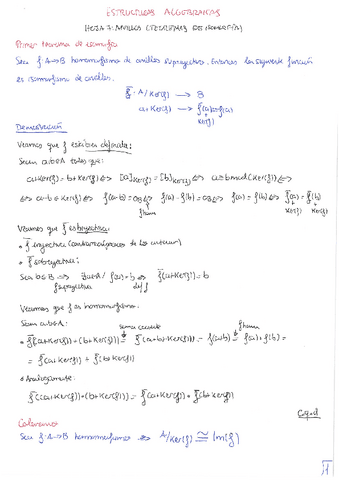 ESTRUCTURAS ALGEBRAICAS
HOJA 7: ANILLOS (TEOREMAS DE ISOMORFÍA)
Primer teorema de isomorfía
Sea f: A→B homomorfismo de anillos suprayectivo. Entonces la siguiente función
es isomorfismo de anillos.
f̄: A/Ker(f) → B
a+Ker(f) → f̄(a+Ker(f))=f(a)
Demostración
Veamos que f̄ está bien definida:
Sean a,b∈A tales que:
a+Ker(f) = b+Ker(f) ⟺ [a]Ker(f) = [b]Ker(f) ⟺ a≡b mod(Ker(f)) ⟺
⟺ a-b ∈ Ker(f) ⟺ f(a-b) = 0B ⟺ f(a)-f(b) = 0B ⟺ f(a) = f(b) ⟺ f̄(a+Ker(f)) = f̄(b+Ker(f))
f hom
Veamos que f̄ es biyectiva:
• f̄ inyectiva
• f̄ sobreyectiva:
Sea b∈B ⟹ ∃a∈A / f(a)=b ⟺ f̄(a+Ker(f)) = b
f suprayectiva def f̄
Veamos que f̄ es homomorfismo.
Sean a,b∈A:
suma cociente f hom
• f̄((a+Ker(f))+(b+Ker(f))) = f̄((a+b)+Ker(f)) = f(a+b) = f(a)+f(b) =
= f̄(a+Ker(f)) + f̄(b+Ker(f))
• Análogamente:
f̄((a+Ker(f))•(b+Ker(f))) = f̄(a+Ker(f)) • f̄(b+Ker(f))
c.q.d
Corolario
Sea f: A→B homomorfismo ⟹ A/Ker(f) ≅ Im(f)
1